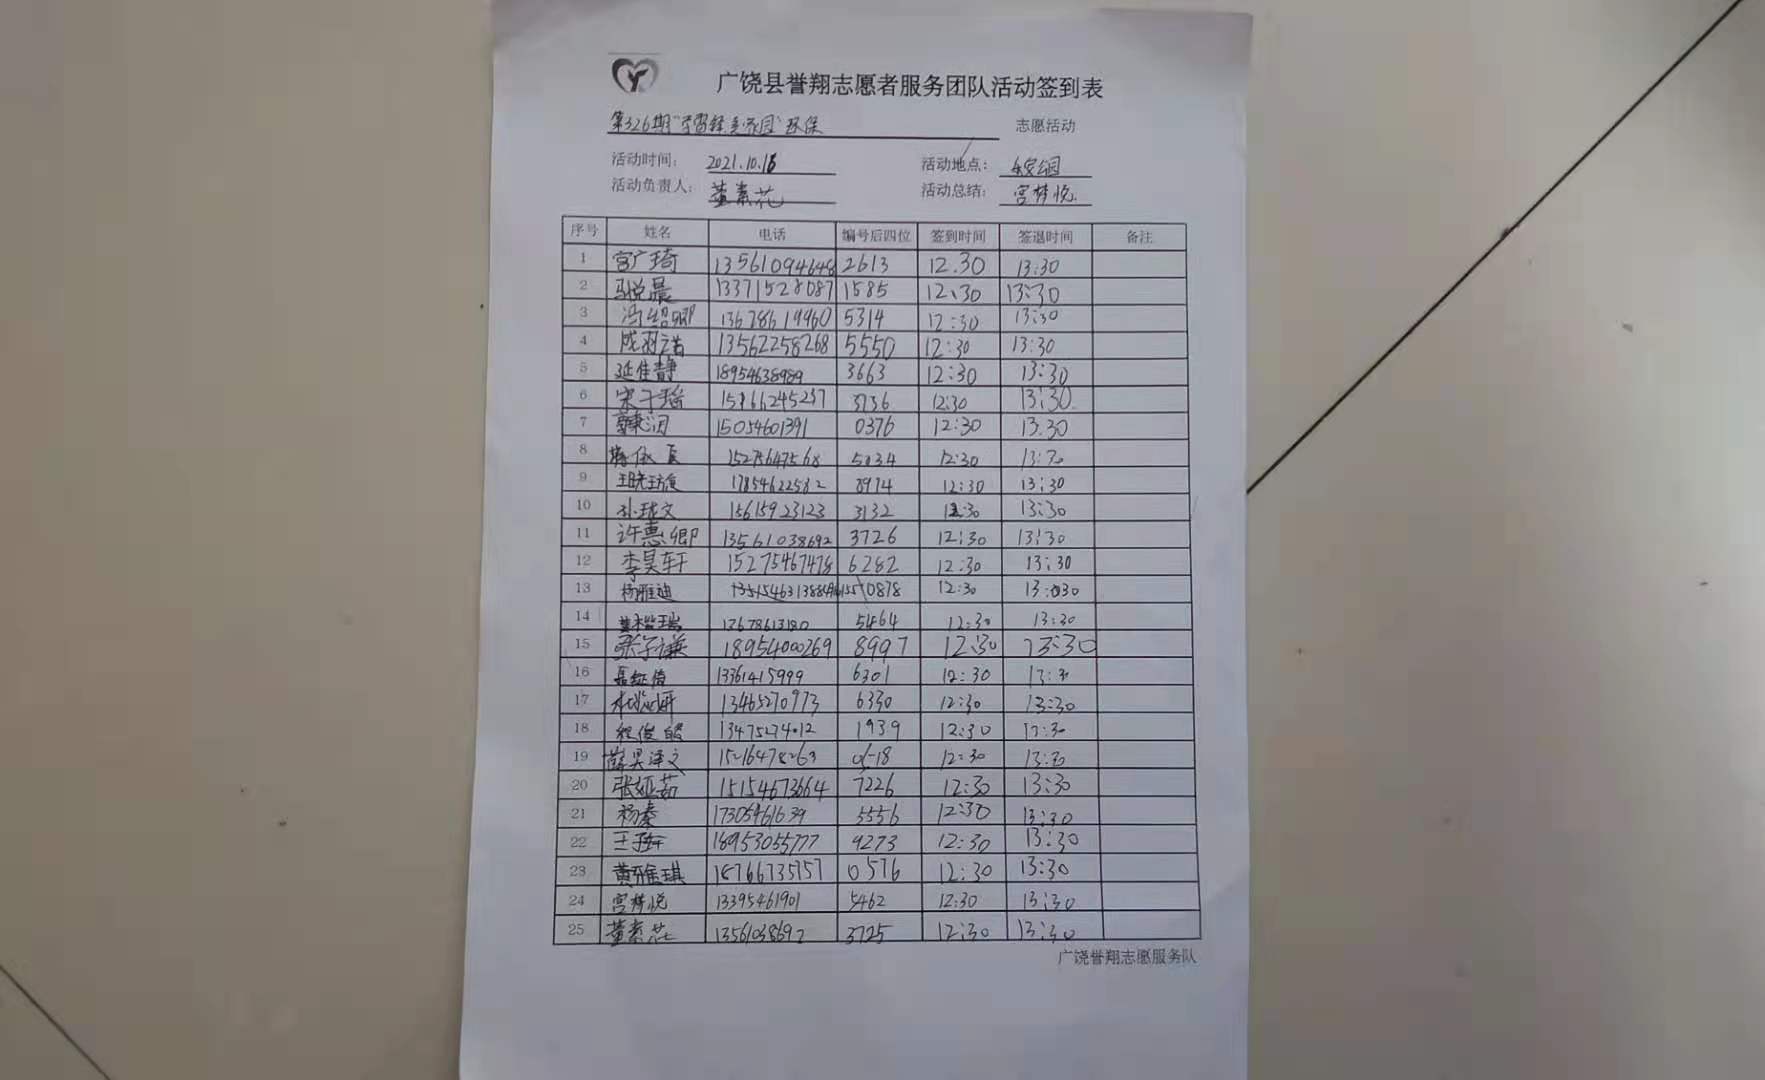 广饶县誉翔志愿者服务团队活动签到表
第326期"学雷锋 爱家园"环保 志愿活动
活动时间: 2021.10.16 活动地点: 公园
活动负责人: 董素花 活动总结: 宫梦悦
序号 姓名 电话 编号后四位 签到时间 签退时间 备注
1 宫广琦 13561094648 2613 12.30 13:30
2 悦晨 13371528087 1585 12:30 13:30
3 冯绍卿 13678619960 5314 12:30 13:30
4 成羽诺 13562258268 5550 12:30 13:30
5 延佳静 18954638989 3663 12:30 13:30
6 宋子瑶 15866245237 3736 12:30 13:30
7 15054601391 0376 12:30 13.30
8 15275647568 5834 12:30 13:30
9 王晓 17854622582 8974 12:30 13:30
10 孙 文 15615923123 3132 12:30 13:30
11 许惠卿 13561038692 3726 12:30 13:30
12 李昊轩 15275467478 6282 12:30 13:30
13 杨雅迪 0878 12:30 13:30
14 13678613180 5464 12:30 13:30
15 张子谦 18954000269 8997 12:30 13:30
16 13361415999 6301 12:30 13:30
17 妍 13465270973 6330 12:30 13:30
18 程俊皓 1939 12:30 13:30
19 薛昊泽文 12:30 13:30
20 张娅茹 15154673664 7226 12:30 13:30
21 杨秦 17305461639 5556 12:30 13:30
22 王 18953055777 9273 12:30 13:30
23 黄雅琪 18766735757 0576 12:30 13:30
24 宫梦悦 13395461901 5462 12:30 13:30
25 董素花 13561038692 3725 12:30 13:30
广饶誉翔志愿服务队